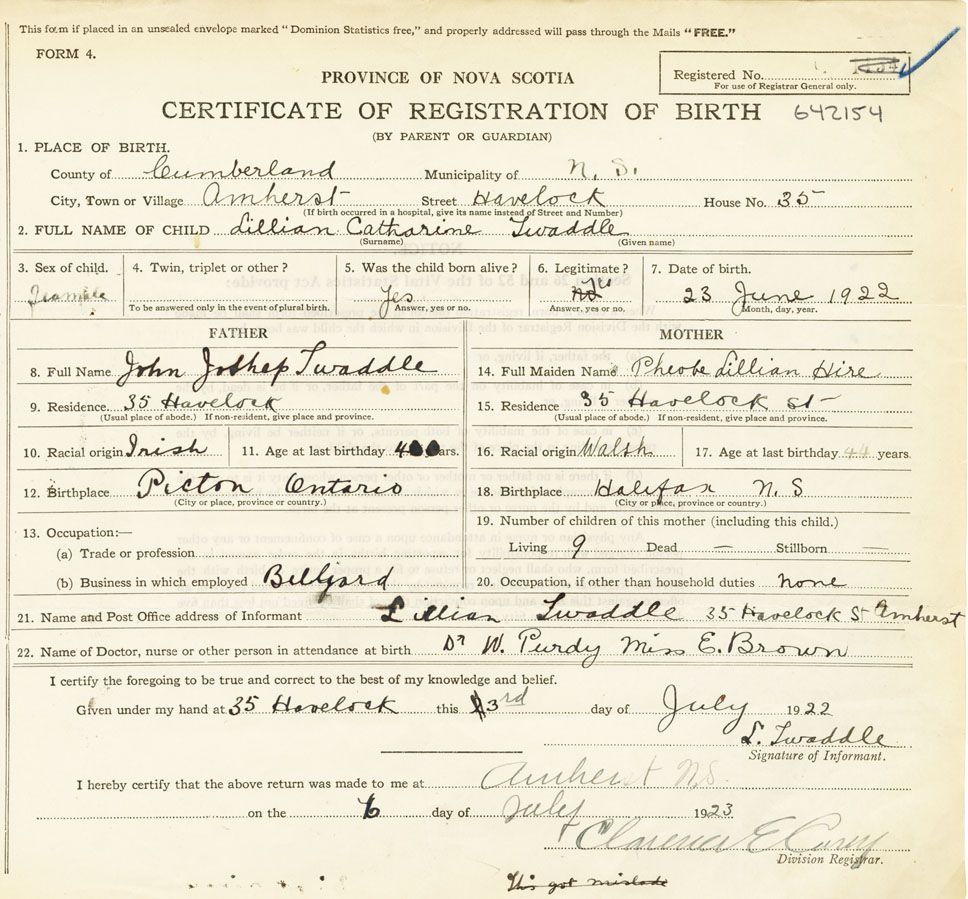 This form if placed in an unsealed envelope marked "Dominion Statistics free," and properly addressed will pass through the Mails "FREE."
FORM 4.
Registered No.
For use of Registrar General only.
PROVINCE OF NOVA SCOTIA
CERTIFICATE OF REGISTRATION OF BIRTH 642154
(BY PARENT OR GUARDIAN)
1. PLACE OF BIRTH.
County of Cumberland Municipality of N. S.
City, Town or Village Amherst Street Havelock House No. 35
(If birth occurred in a hospital, give its name instead of Street and Number)
2. FULL NAME OF CHILD Lillian Catharine Twaddle
(Surname) (Given name)
3. Sex of child. 4. Twin, triplet or other? 5. Was the child born alive? 6. Legitimate? 7. Date of birth.
Feamale Yes 23 June 1922
To be answered only in the event of plural birth. Answer, yes or no. Answer, yes or no. Month, day, year.
FATHER MOTHER
8. Full Name John Jothep Twaddle 14. Full Maiden Name Pheobe Lillian Hire
9. Residence 35 Havelock 15. Residence 35 Havelock St
(Usual place of abode.) If non-resident, give place and province. (Usual place of abode.) If non-resident, give place and province.
10. Racial origin Irish 11. Age at last birthday years. 16. Racial origin Walsh 17. Age at last birthday 44 years.
12. Birthplace Picton Ontario 18. Birthplace Halifax N. S
(City or place, province or country.) (City or place, province or country.)
13. Occupation:— 19. Number of children of this mother (including this child.)
(a) Trade or profession Living 9 Dead — Stillborn —
(b) Business in which employed Billjard 20. Occupation, if other than household duties none
21. Name and Post Office address of Informant Lillian Twaddle 35 Havelock St Amherst
22. Name of Doctor, nurse or other person in attendance at birth Dr W. Purdy Miss E. Brown
I certify the foregoing to be true and correct to the best of my knowledge and belief.
Given under my hand at 35 Havelock this 3rd day of July 1922
L. Twaddle
Signature of Informant.
I hereby certify that the above return was made to me at Amherst N.S.
on the 6 day of July 1923
Clarence E Casey
Division Registrar.
This got mislade